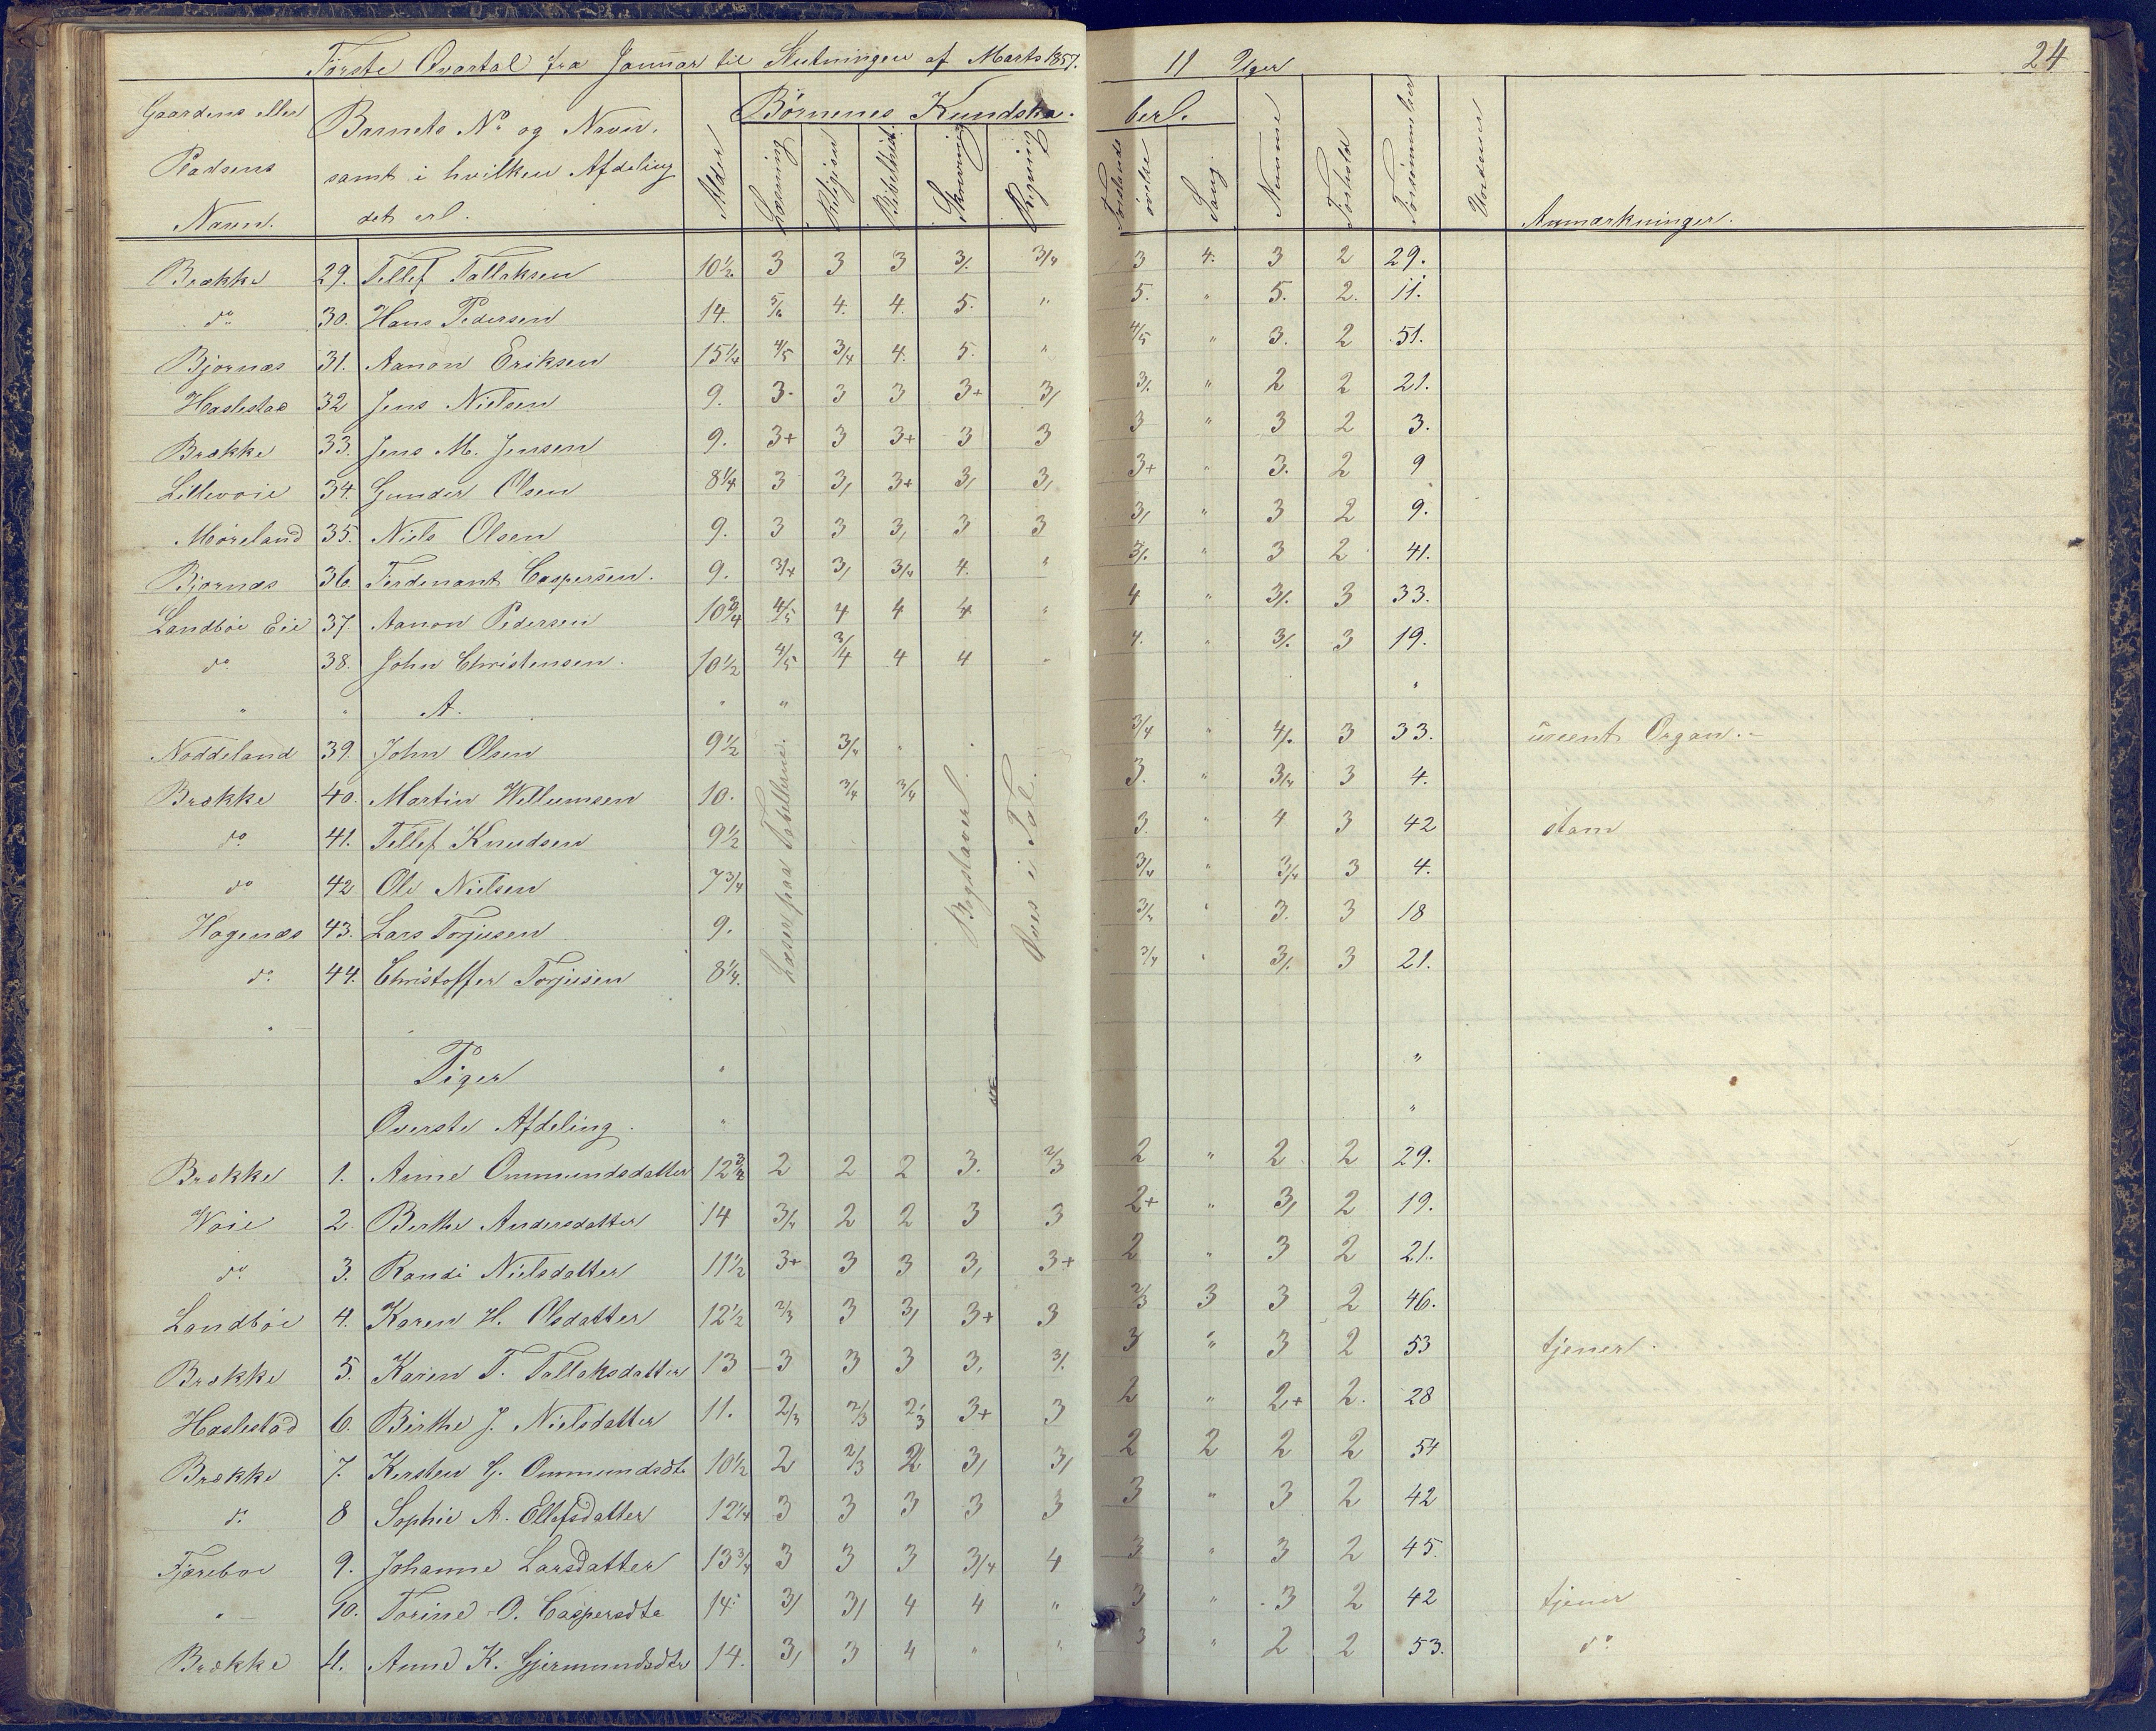 Første Qvartal fra Januar til Slutningen af Marts 1857. 11 Uger 24
Gaardens eller Pladsens Navn. Barnets No og Navn. samt i hvilken Afdeling det er. Alder Børnenes Kundskaberl.
Læsning Religion Bibelhist. Skrivning Regning Forstands øvelse Sang. Nemme Forhold Forsømmelser Anmærkninger.
Brække 29. Tellef Tallaksen 10½ 3 3 3 3/. 3/4 3 4. 3 2 29.
do 30. Hans Pedersen 14. 5/6 4. 4. 5. " 5. " 5. 2. 11.
Bjornæs 31. Aanon Eriksen 15¼ 4/5 3/4 4. 5. " 4/5 " 3. 2 51.
Haslestad 32 Jens Nielsen 9. 3. 3 3 3+ 3/ 3/. " 2 2 21.
Brække 33. Jens M. Jensen 9. 3+ 3 3+ 3 3 3 " 3 2 3.
Lillevoie 34. Gunder Olsen 8¼ 3 3/ 3+ 3/ 3/ 3+ " 3. 2 9
Moreland 35. Niels Olsen 9. 3 3 3/ 3 3 3/ " 3 2 9.
Bjornæs 36. Ferdenant Caspersen. 9. 3/4 3/ 3/4 4. " 3/. " 3 2 41.
Landbøe Eie 37 Aanon Pedersen 10¾ 4/5 4 4 4 " 4 " 3/. 3 33.
do 38. John Christensen. 10½ 4/5 3/4 4 4 " 4. " 3/. 3 19.
" " A. " "
Noddeland 39. John Olsen 9½ 3/4 " 3/4 " 4/. 3 33. ureent Organ.
Brække 40. Martin Willumsen 10. 3/4 3/4 3. " 3/4 3 4.
do 41. Tellef Knudsen 9½ 3. " 4 3 42 stam
do 42 Ole Nielsen 7¾ 3/4 " 3/4 3 4.
Hagenæs 43. Lars Torjusen 9. 3/4 " 3. 3 18
do 44. Christoffer Torjusen 8¼. 3/4 " 3/. 3 21.
Læser paa Tabellerne.
Bogstaver.
Øves i Tal.
Piger
Øverste Afdeling.
Brække 1. Anne Ommundsdatter 12¾ 2 2 2 3. 2/3 2 " 2 2 29.
Voie 2 Berthe Andersdatter 14 3/4 2 2 3 3 2+ " 3/ 2 19.
do 3. Randi Nielsdatter 11½ 3+ 3 3 3/ 3+ 2 " 3 2 21.
Landbøe 4. Karen H. Olsdatter 12½ 2/3 3 3/ 3+ 3 2/3 3 3 2 46.
Brække 5. Karen T. Tallaksdatter 13 3 3 3 3/ 3/. 3 " 3 2 53 tjener.
Haslestad 6. Birthe J. Nielsdatter 11. 2/3 2/3 2/3 3+ 3 2 " 2+ 2. 28
Brække 7. Kersten G. Ommundsdtr 10½ 2 2/3 2 3/ 3/ 2 2 2 2 54
do 8 Sophie A. Ellefsdatter 12¼ 3 3 3 3 3 3 " 3 2 42
Fjæreboe 9. Johanne Larsdatter 13¾ 3 3 3 3/4 4 3 " 3 2 45.
" 10. Torine O. Caspersdtr 14. 3/ 3/ 4 4 " 3 " 3 2 42 tjener
Brække 11. Anne K. Gjermundsdtr 14. 3/ 3 4 " " 3 " 2 2 53. do